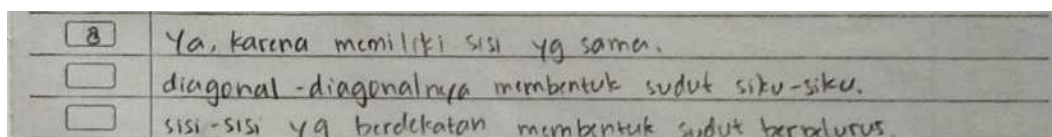 8 Ya, karena memiliki sisi yg sama.
diagonal-diagonalnya membentuk sudut siku-siku.
sisi-sisi yg berdekatan membentuk sudut berpelurus.